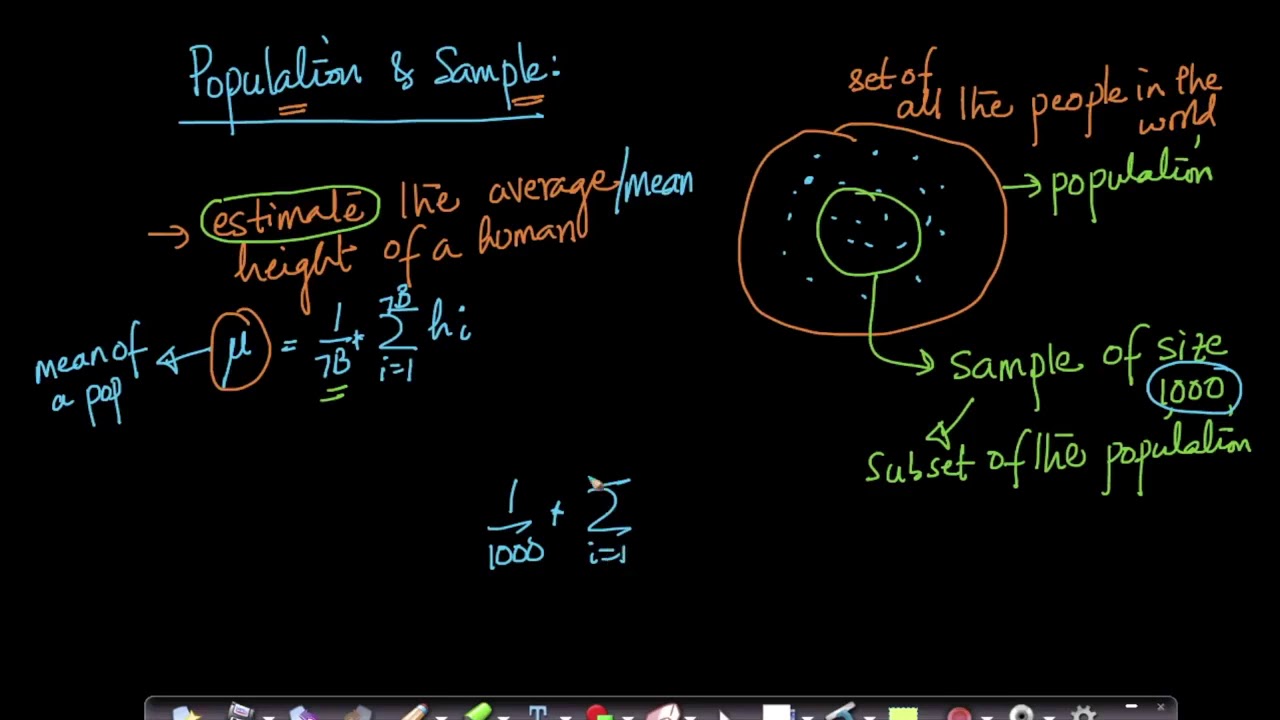 Population & Sample:
set of
all the people in the
world
→ population
→ estimate the average/mean
height of a human
mean of
a pop
μ = 1/7B * 7B ∑ i=1 hi
Sample of size
1000
subset of the population
1/1000 * ∑ i=1
T